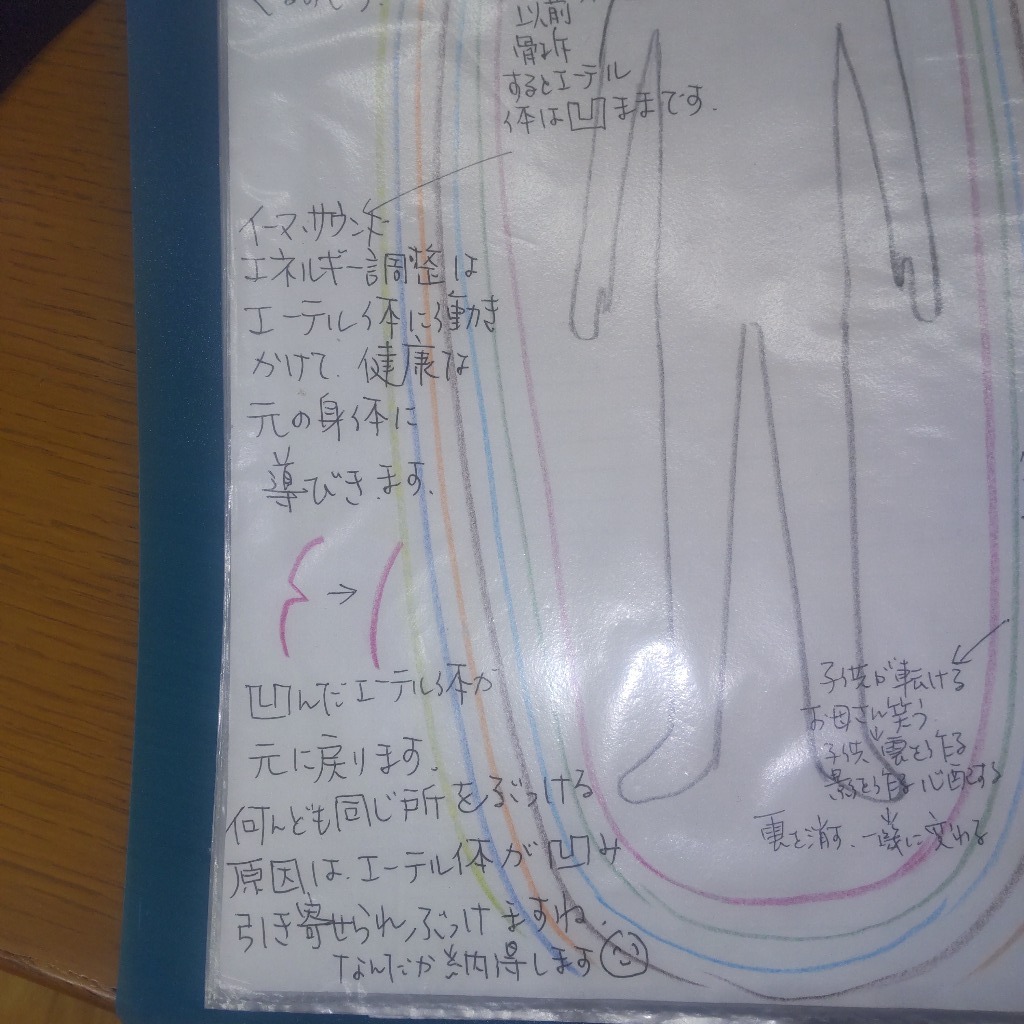 以前
骨折
するとエーテル
体は凹ままです.
イーマ.サウンド
エネルギー調整は
エーテル体に働き
かけて、健康な
元の身体に
導びきます.
→
凹んだエーテル体が
元に戻ります.
何んども同じ所をぶつける
原因は、エーテル体が凹み
引き寄せられぶつけますね.
なんだか納得します
子供が転ける
お母さん笑う
子供 裏を作る
影を作る 心配する
裏を消す. 一瞬に変わる